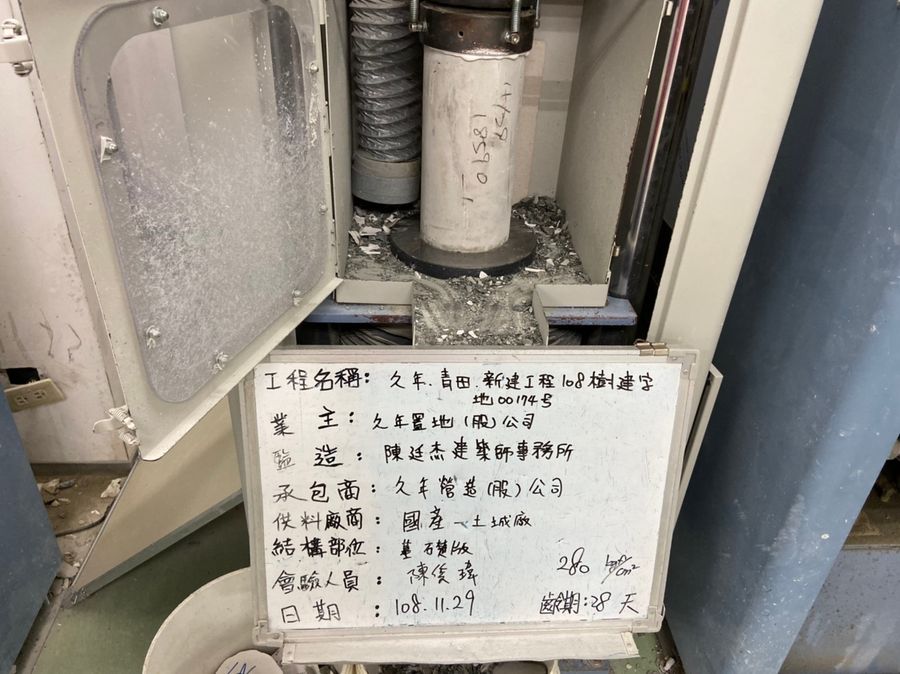 工程名稱: 久年.青田.新建工程108樹建字
地00174号
業主: 久年置地(股)公司
監造: 陳廷杰建築師事務所
承包商: 久年營造(股)公司
供料廠商: 國產-土城廠
結構部位: 基礎版
280
會驗人員: 陳俊瑋
日期: 108.11.29
齡期:28天